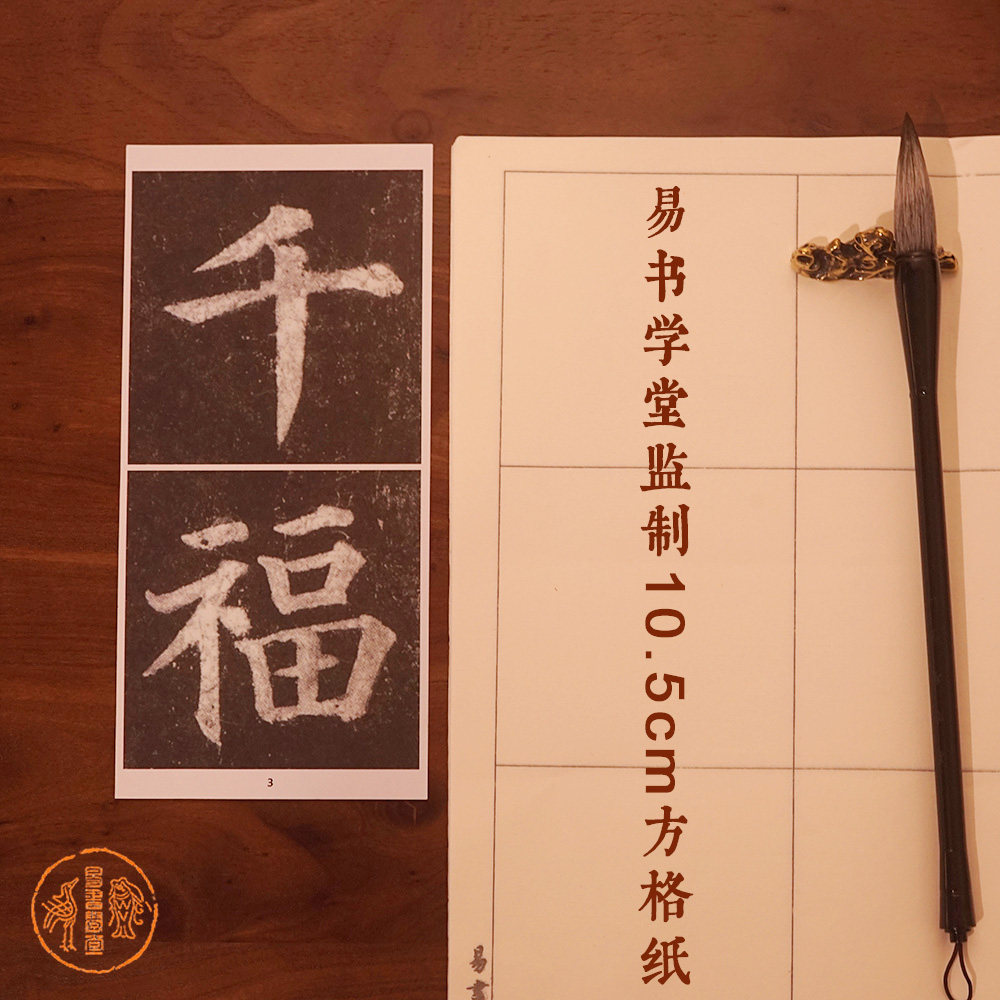 千
福
3
易书学堂监制10.5cm方格纸
易書學堂
易書